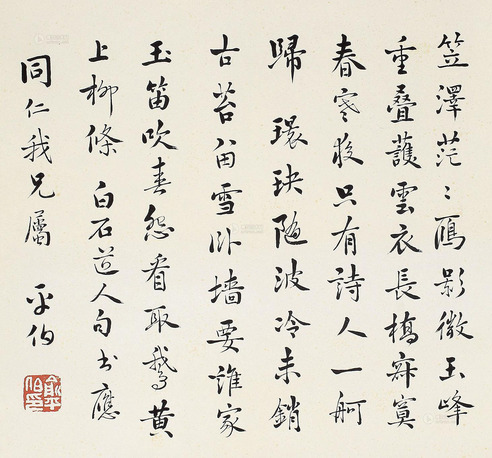 笠澤茫〻鴈影微玉峰
重疊護雲衣長橋寂寞
春寒夜只有詩人一舸
歸 環玦隨波冷未銷
古苔留雪卧墙要誰家
玉笛吹春怨看取鵝黄
上柳條 白石道人句書應
同仁我兄屬 平伯
俞平伯印